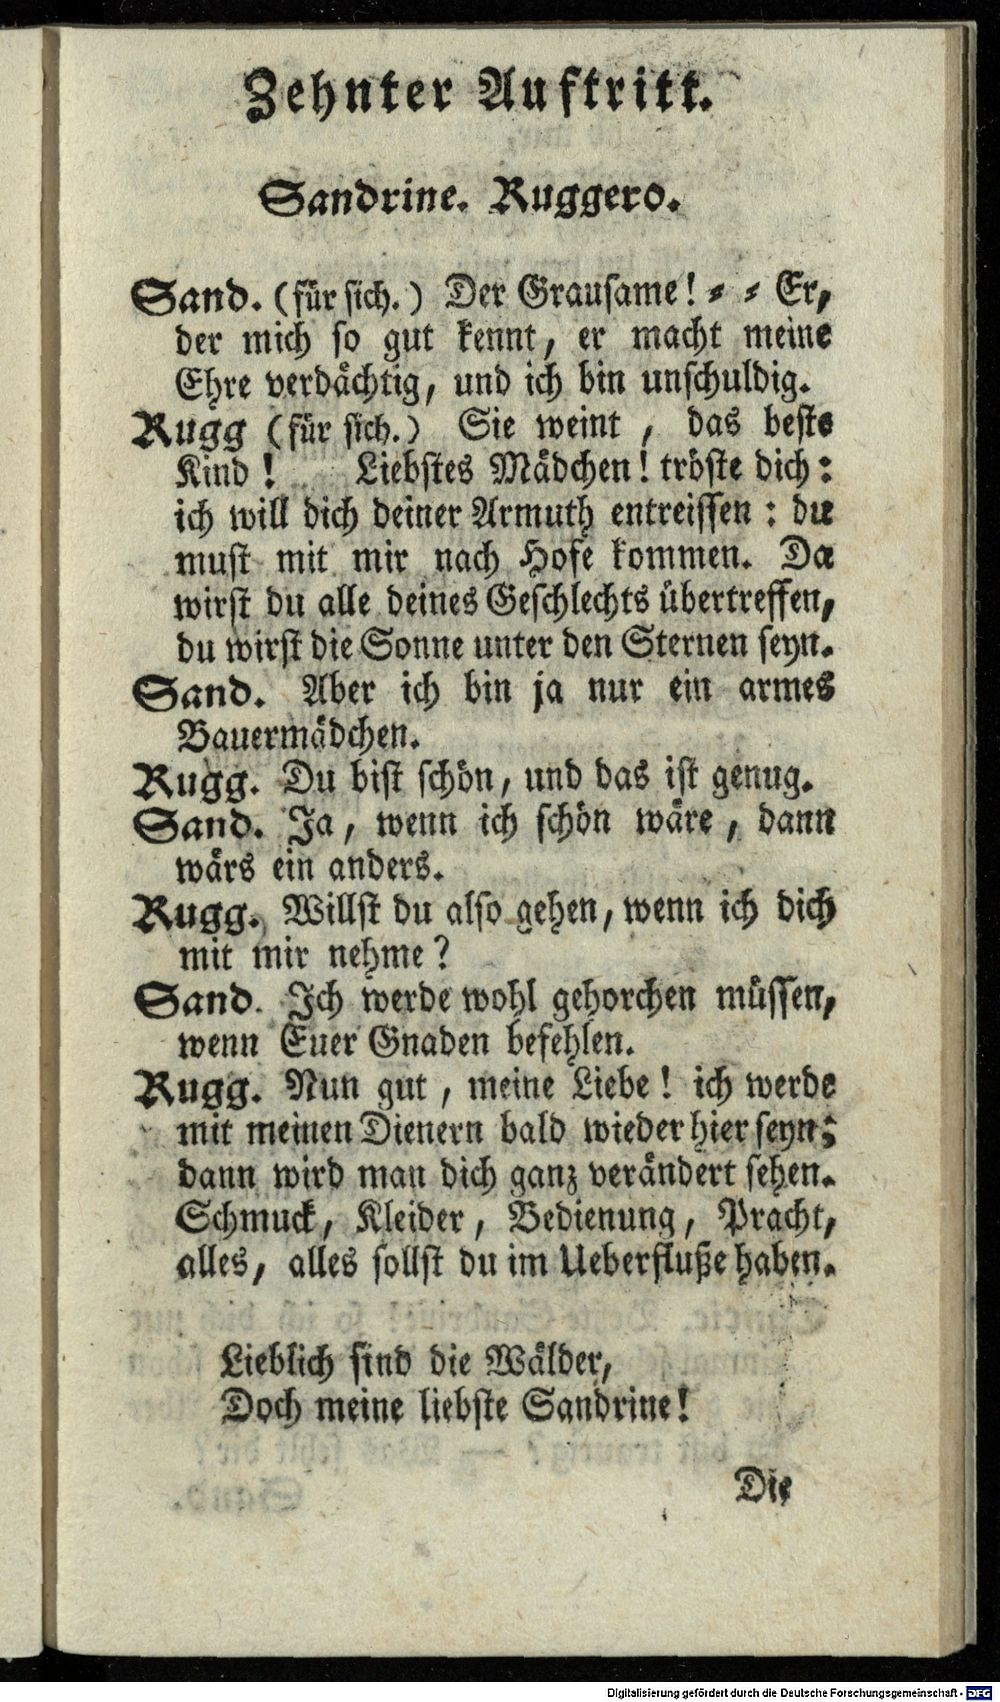 Zehnter Auftritt.
Sandrine. Ruggero.
Sand. (für sich.) Der Grausame! ⸗ ⸗ Er,
der mich so gut kennt, er macht meine
Ehre verdächtig, und ich bin unschuldig.
Rugg (für sich.) Sie weint, das beste
Kind! Liebstes Mädchen! tröste dich:
ich will dich deiner Armuth entreissen: du
must mit mir nach Hofe kommen. Da
wirst du alle deines Geschlechts übertreffen,
du wirst die Sonne unter den Sternen seyn.
Sand. Aber ich bin ja nur ein armes
Bauermädchen.
Rugg. Du bist schön, und das ist genug.
Sand. Ja, wenn ich schön wäre, dann
wärs ein anders.
Rugg. Willst du also gehen, wenn ich dich
mit mir nehme?
Sand. Ich werde wohl gehorchen müssen,
wenn Euer Gnaden befehlen.
Rugg. Nun gut, meine Liebe! ich werde
mit meinen Dienern bald wieder hier seyn;
dann wird man dich ganz verändert sehen.
Schmuck, Kleider, Bedienung, Pracht,
alles, alles sollst du im Ueberfluße haben.
Lieblich sind die Wälder,
Doch meine liebste Sandrine!
Die
Digitalisierung gefördert durch die Deutsche Forschungsgemeinschaft - DFG